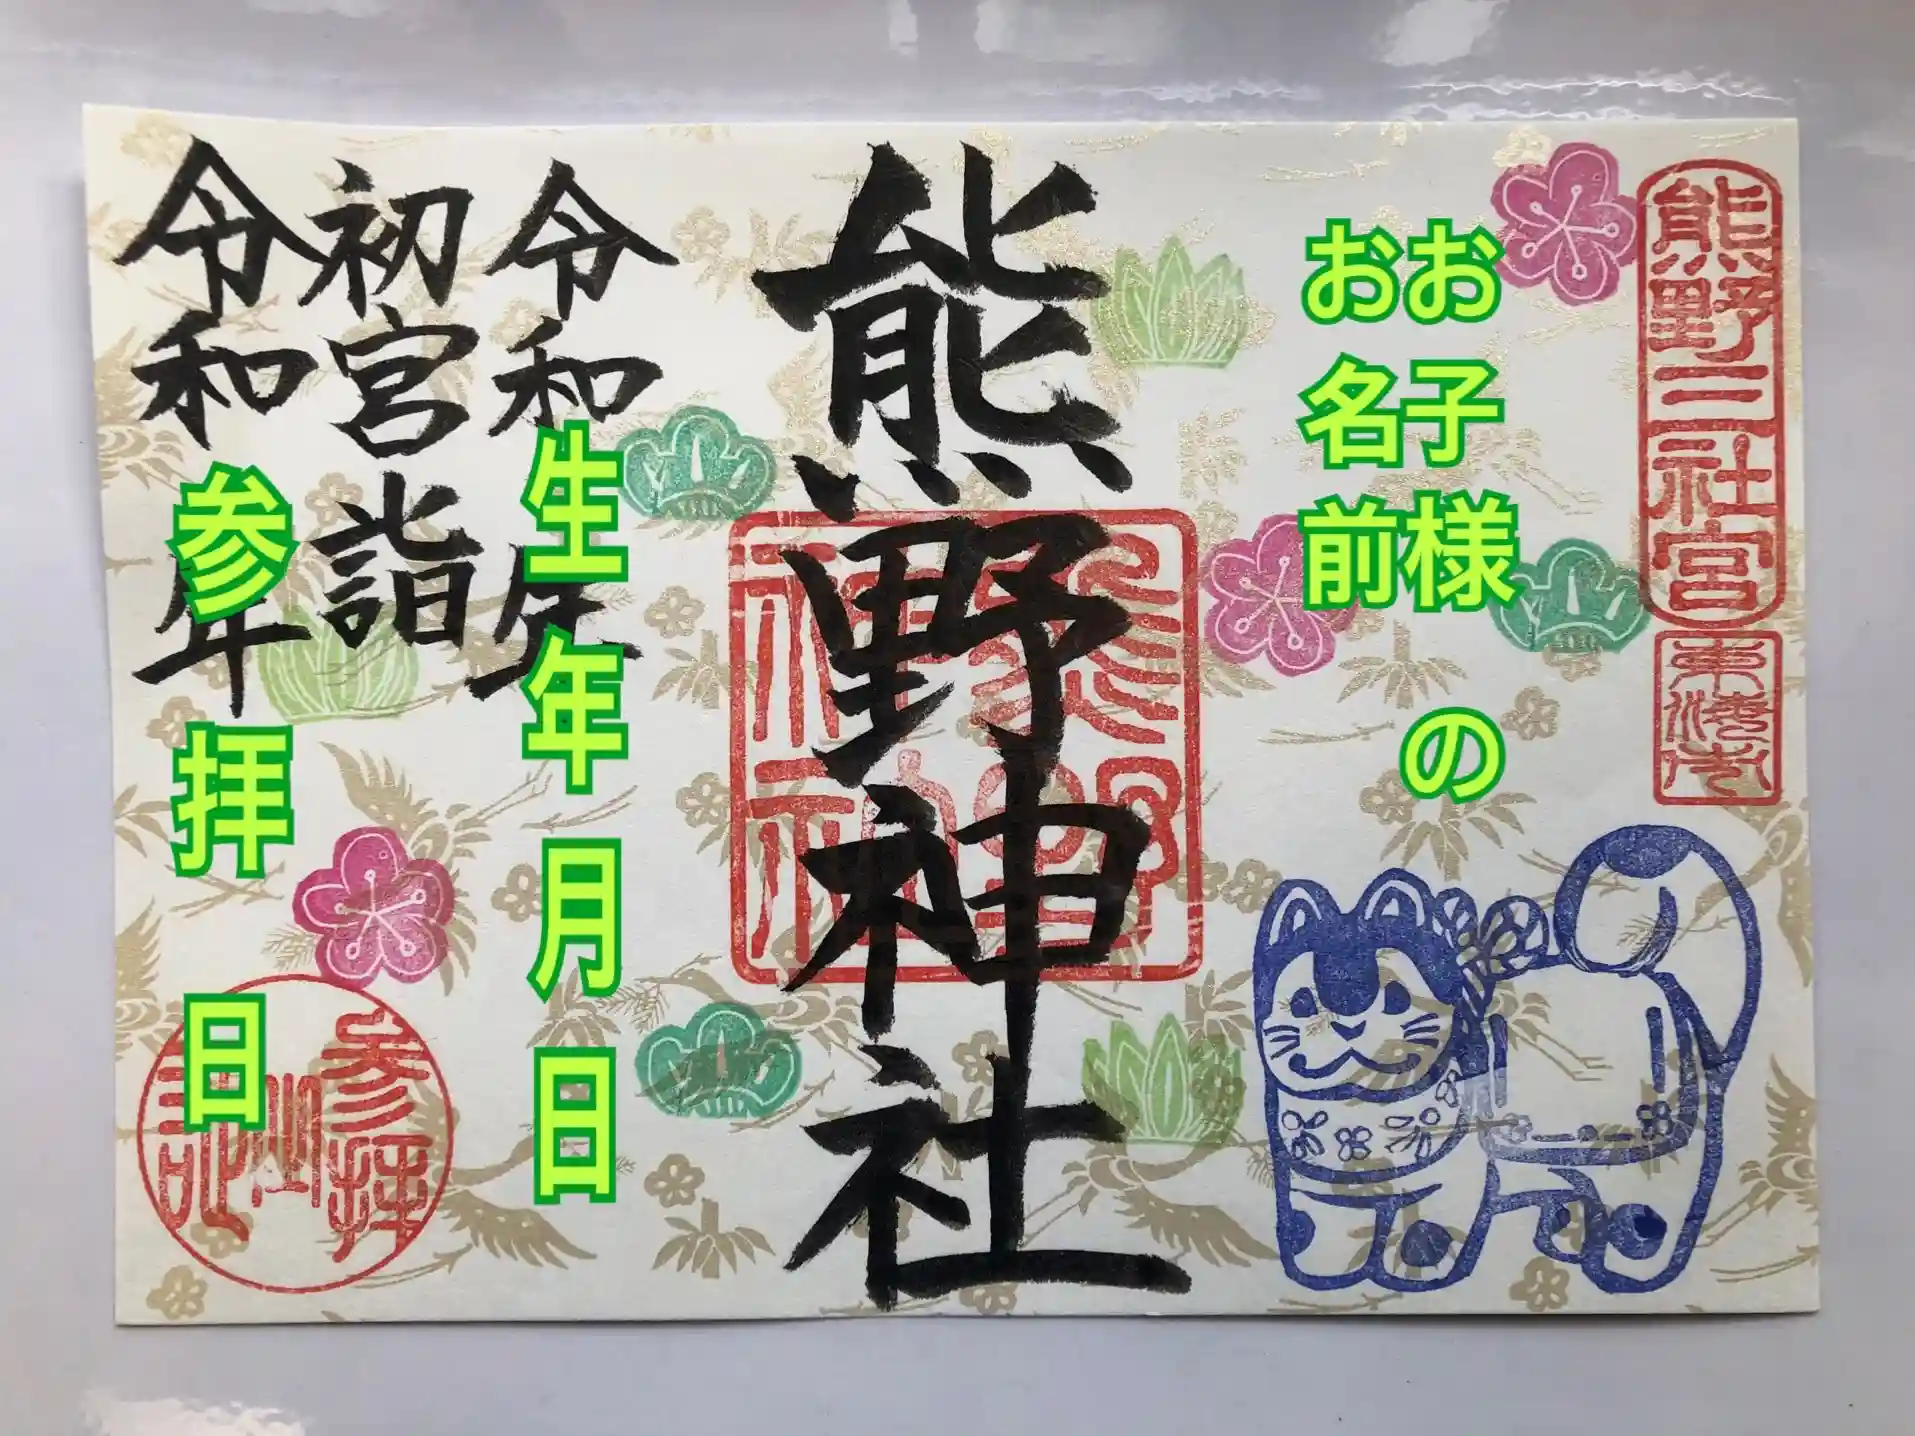 熊野三社宮
東海市
お子様の
お名前
熊野神社
熊野神社
令和 年
生年月日
初宮詣
令和 年
参拝日
参拝